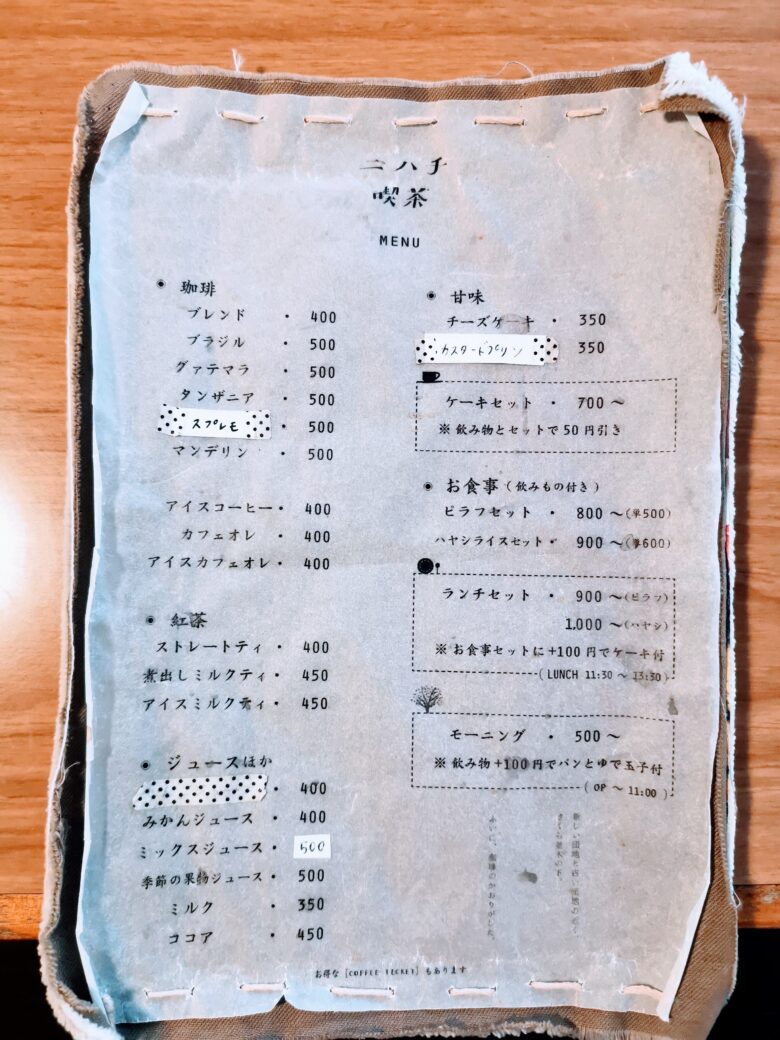 ニハチ
喫茶
MENU
珈琲
ブレンド ・ 400
ブラジル ・ 500
グァテマラ ・ 500
タンザニア ・ 500
スプレモ ・ 500
マンデリン ・ 500
アイスコーヒー・ 400
カフェオレ ・ 400
アイスカフェオレ・ 400
紅茶
ストレートティ ・ 400
煮出しミルクティ・ 450
アイスミルクティ・ 450
ジュースほか
・ 400
みかんジュース ・ 400
ミックスジュース・ 500
季節の果物ジュース・ 500
ミルク ・ 350
ココア ・ 450
甘味
チーズケーキ ・ 350
カスタードプリン 350
ケーキセット ・ 700 〜
※ 飲み物とセットで 50 円引き
お食事 ( 飲みもの付き )
ピラフセット ・ 800 〜(単500)
ハヤシライスセット・ 900 〜(単600)
ランチセット ・ 900 〜(ピラフ)
1,000 〜(ハヤシ)
※ お食事セットに +100 円でケーキ付
( LUNCH 11:30 〜 13:30 )
モーニング ・ 500 〜
※ 飲み物 +100 円でパンとゆで玉子付
( OP 〜 11:00 )
新しい団地と古い団地の近く、
さくら並木の下。
ふいに、珈琲のかおりがした。
お得な [COFFEE TICKET] もあります